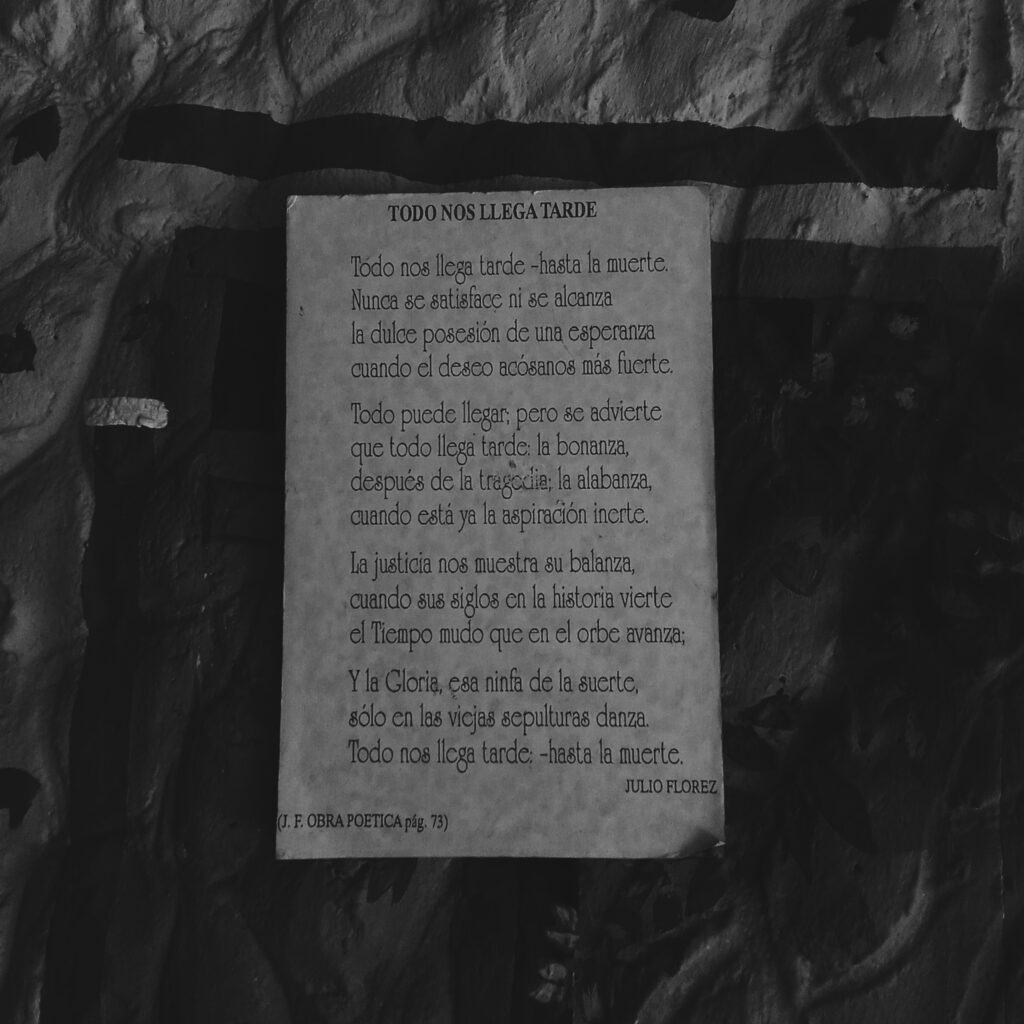 TODO NOS LLEGA TARDE
Todo nos llega tarde -hasta la muerte.
Nunca se satisface ni se alcanza
la dulce posesión de una esperanza
cuando el deseo acósanos más fuerte.
Todo puede llegar; pero se advierte
que todo llega tarde: la bonanza,
después de la tragedia; la alabanza,
cuando está ya la aspiración inerte.
La justicia nos muestra su balanza,
cuando sus siglos en la historia vierte
el Tiempo mudo que en el orbe avanza;
Y la Gloria, esa ninfa de la suerte,
sólo en las viejas sepulturas danza.
Todo nos llega tarde: -hasta la muerte.
JULIO FLOREZ
(J. F. OBRA POETICA pág. 73)